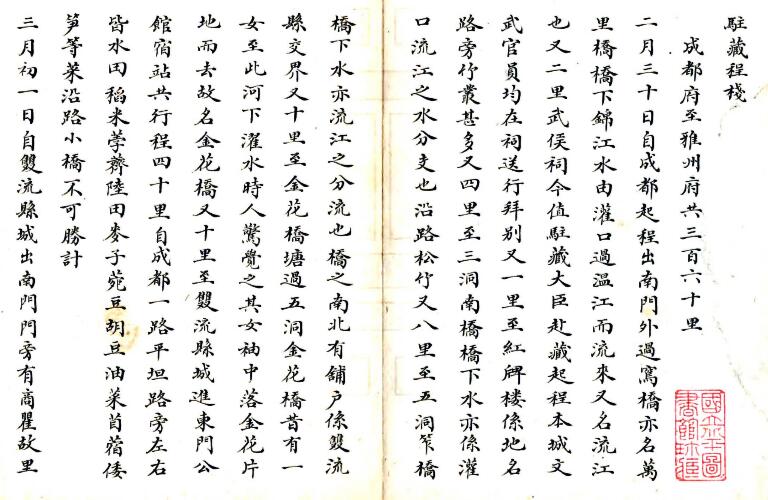 駐藏程棧
成都府至雅州府共三百六十里
二月三十日自成都起程出南門外過窩橋亦名萬
里橋橋下錦江水由灌口過溫江而流來又名流江
也又二里武侯祠今值駐藏大臣赴藏起程本城文
武官員均在祠送行拜别又一里至紅牌楼係地名
路旁竹叢甚多又四里至三洞南橋橋下水亦係灌
口流江之水分支也沿路松竹又八里至五洞笮橋
橋下水亦流江之分流也橋之南北有舖戶係雙流
縣交界又十里至金花橋塘過五洞金花橋昔有一
女至此河下濯水時人驚覺之其女袖中落金花片
地而去故名金花橋又十里至雙流縣城進東門公
館宿站共行程四十里自成都一路平坦路旁左右
皆水田稻米荸薺陸田麥子菀豆胡豆油菜苜蓿倭
笋等菜沿路小橋不可勝計
三月初一日自雙流縣城出南門門旁有商瞿故里
國立北平圖
書館珍藏